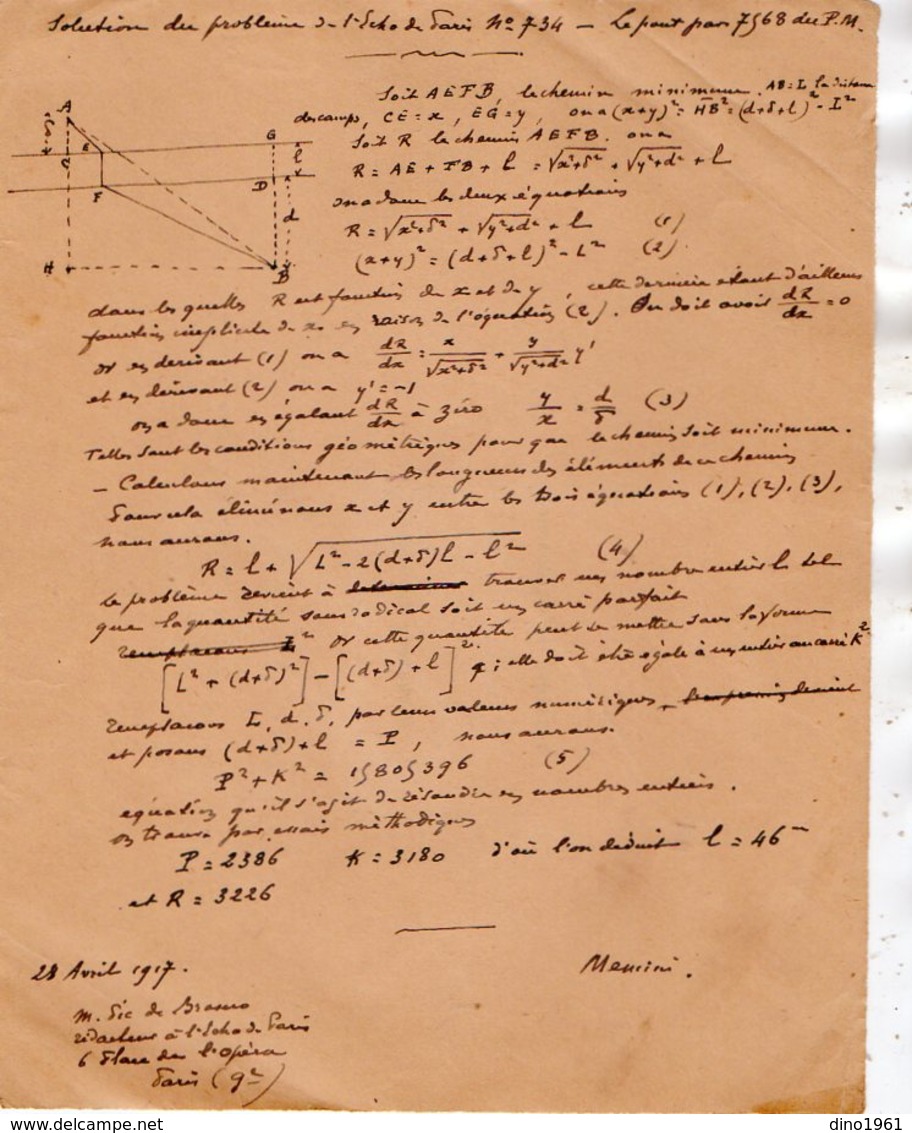 Solution du problème de l'Echo de Paris No 734 — Le pont par 7568 du P.M.
Soit AEFB, le chemin minimum. AB = L la distance
des camps, CE = x, EG = y, on a (x+y)² = HB² = (d+δ+l)² - L²
Soit R le chemin AEFB. on a
R = AE + FB + l = √x²+δ² + √y²+d² + l
on a donc les deux équations
R = √x²+δ² + √y²+d² + l (1)
(x+y)² = (d+δ+l)² - L² (2)
A
δ
C
E
G
l
F
D
d
H
B
dans lesquelles R est fonction de x et de y, cette dernière étant d'ailleurs
fonction implicite de x en raison de l'équation (2). On doit avoir dR/dx = 0
or en dérivant (1) on a dR/dx = x/√x²+δ² + y/√y²+d² y'
et en dérivant (2) on a y' = -1
on a donc en égalant dR/dx à zéro y/x = d/δ (3)
Telles sont les conditions géométriques pour que le chemin soit minimum.
— Calculons maintenant les longueurs des éléments de ce chemin
Pour cela éliminons x et y entre les trois équations (1), (2), (3),
nous aurons.
R = l + √L² - 2(d+δ)l - l² (4)
Le problème revient à trouver un nombre entier l tel
que la quantité sous radical soit un carré parfait
or cette quantité peut se mettre sous la forme
[L² + (d+δ)²] - [(d+δ) + l]² ; elle doit être égale à un entier au carré K²
remplaçons L, d, δ, par leurs valeurs numériques,
et posons (d+δ)+l = P, nous aurons.
P² + K² = 15805396 (5)
équation qu'il s'agit de résoudre en nombres entiers.
on trouve par essais méthodiques
P = 2386 K = 3180 d'où l'on déduit l = 46 m
et R = 3226
28 Avril 1917. Mencini.
M. Pic de
rédacteur à l'Echo de Paris
6 Place de l'opéra
Paris (9e)
delcampe.net
dino1961